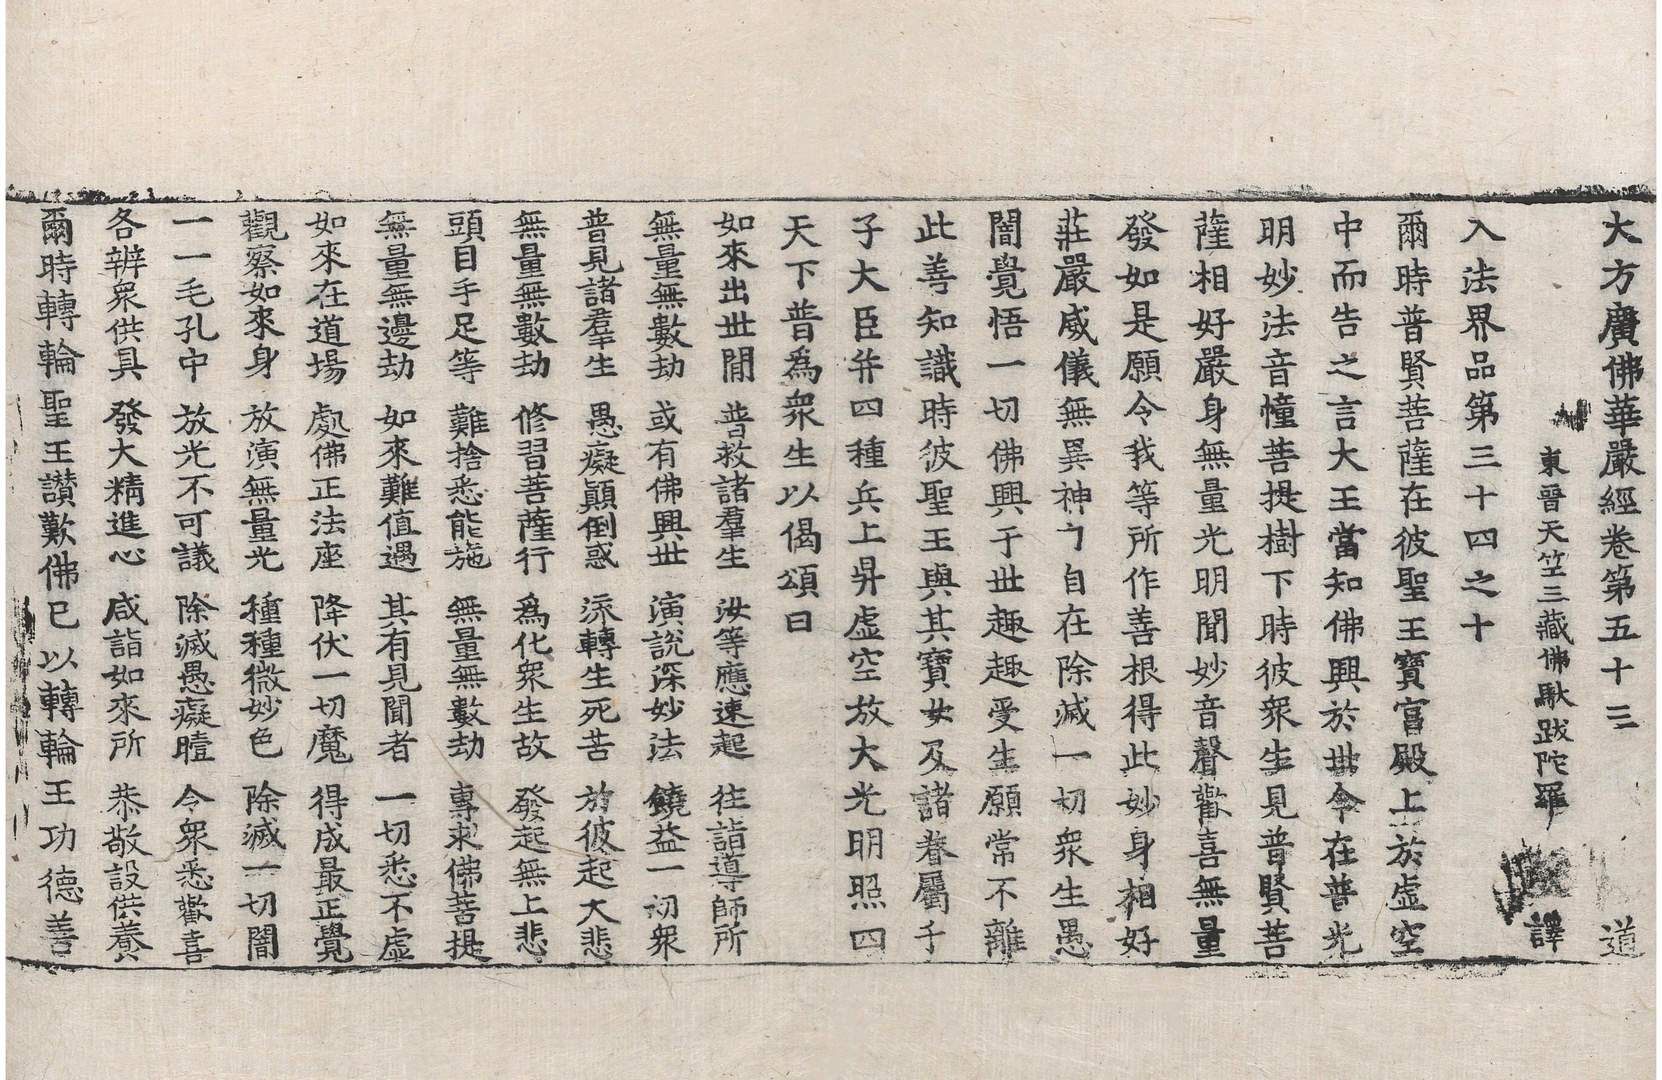 大方廣佛華嚴經卷第五十三 道
東晉天竺三藏佛馱跋陀羅 譯
入法界品第三十四之十
爾時普賢菩薩在彼聖王寶宮殿上於虛空
中而告之言大王當知佛興於世今在普光
明妙法音幢菩提樹下時彼衆生見普賢菩
薩相好嚴身無量光明聞妙音聲歡喜無量
發如是願令我等所作善根得此妙身相好
莊嚴威儀無異神力自在除滅一切衆生愚
闇覺悟一切佛興于世趣趣受生願常不離
此善知識時彼聖王與其寶女及諸眷屬千
子大臣并四種兵上昇虛空放大光明照四
天下普爲衆生以偈頌曰
如來出世閒 普救諸羣生 汝等應速起 往詣導師所
無量無數劫 或有佛興世 演說深妙法 饒益一切衆
普見諸羣生 愚癡顚倒惑 流轉生死苦 於彼起大悲
無量無數劫 修習菩薩行 爲化衆生故 發起無上悲
頭目手足等 難捨悉能施 無量無數劫 專求佛菩提
無量無邊劫 如來難值遇 其有見聞者 一切悉不虛
如來在道場 處佛正法座 降伏一切魔 得成最正覺
觀察如來身 放演無量光 種種微妙色 除滅一切闇
一一毛孔中 放光不可議 除滅愚癡曀 令衆悉歡喜
各辨衆供具 發大精進心 咸詣如來所 恭敬設供養
爾時轉輪聖王讃歎佛已以轉輪王功德善